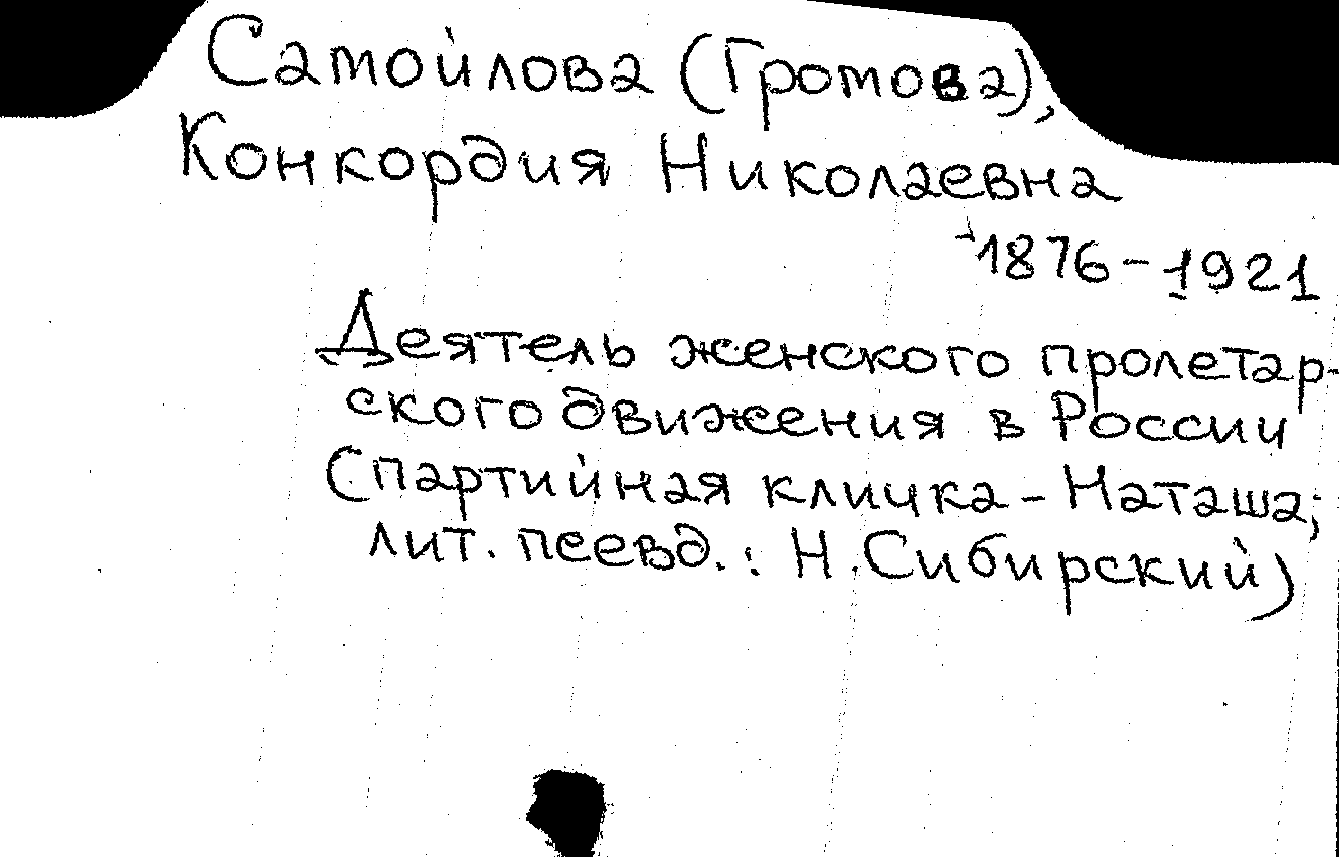 Самойлова (Громова),
Конкордия Николаевна
1876-1921
Деятель женского пролетар-
ского движения в России
(партийная кличка - Наташа;
лит. псевд.: Н. Сибирский)